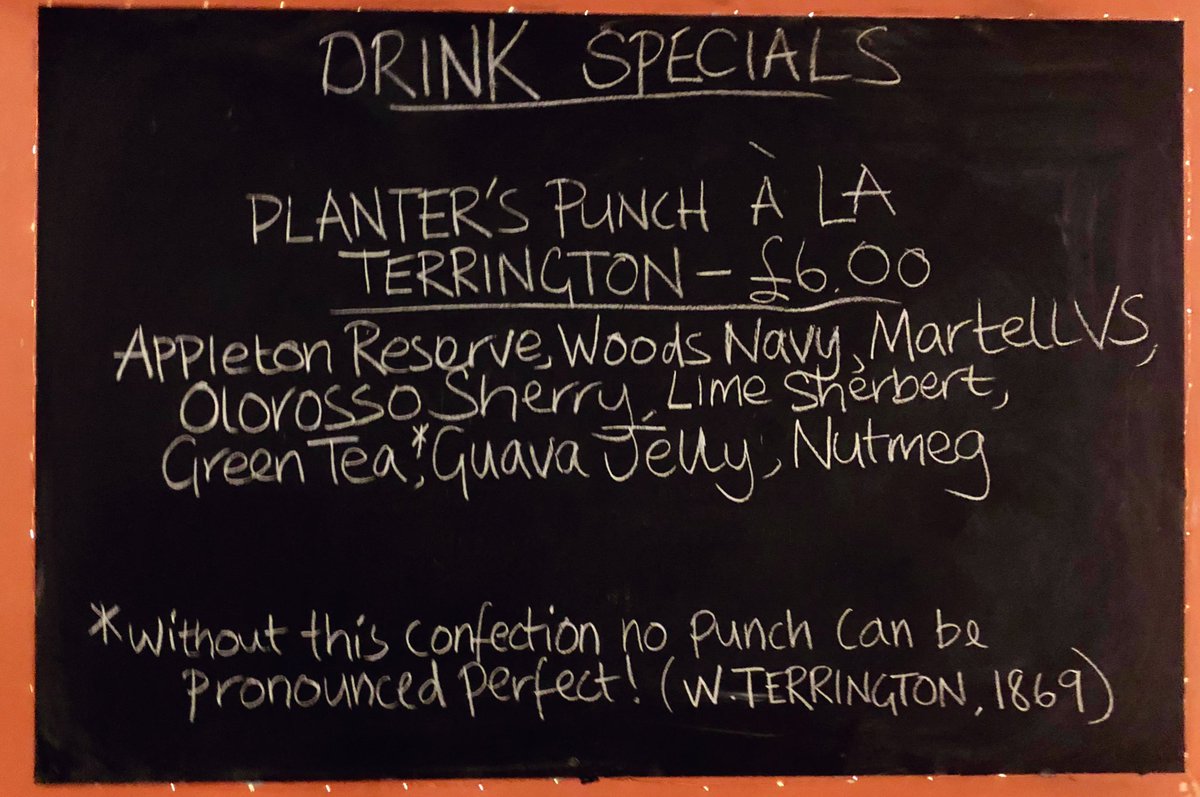 DRINK SPECIALS
PLANTER'S PUNCH À LA
TERRINGTON - £6.00
Appleton Reserve, Woods Navy, Martell VS,
Olorosso Sherry, Lime Sherbert,
Green Tea,* Guava Jelly, Nutmeg
*Without this confection no punch can be
pronounced perfect! (W. TERRINGTON, 1869)